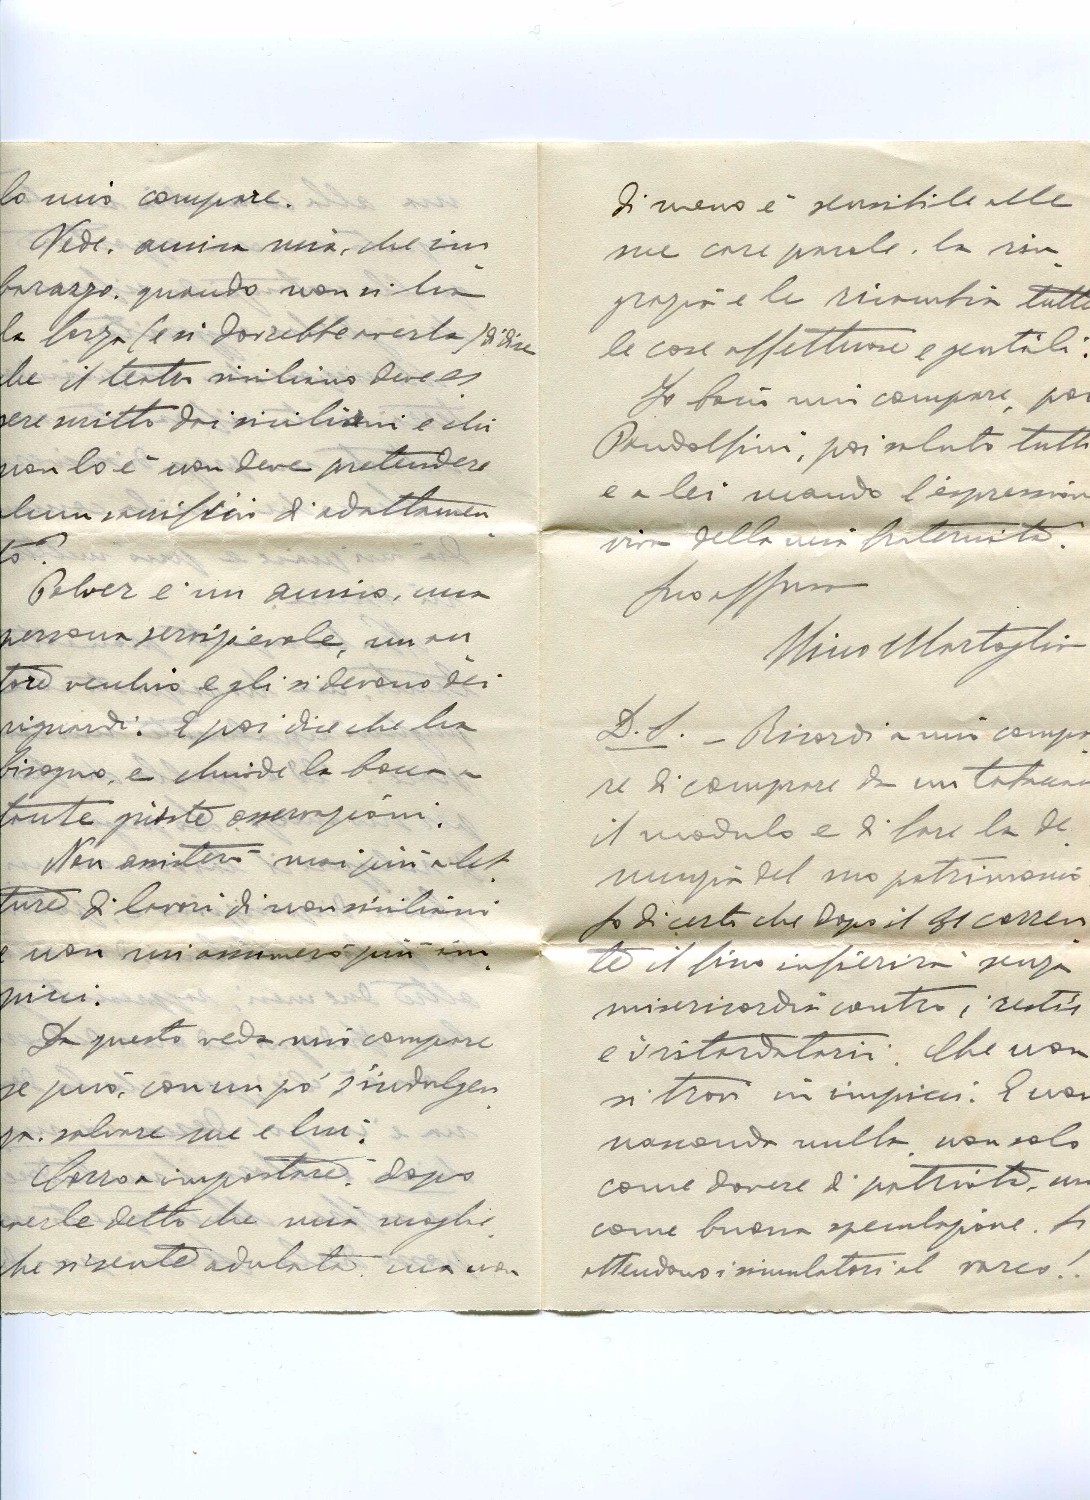 lo mio compare.
Vede, amica mia, che im-
barazzo, quando non si ha
la forza (e si dovrebbe averla) di dire
che il teatro siciliano deve es
sere scritto dai siciliani e chi
non lo è non deve pretendere
alcun sacrificio di adattamen-
to?
Polver è un amico, una
persona servizievole, un au-
tore vecchio e gli si devono dei
riguardi. E poi dice che ha
bisogno, e chiude la bocca a
tante giuste osservazioni.
Non assisterò mai più a let
ture di lavori di non siciliani
e non mi assumerò più im-
picci.
Da questo veda mio compare
se può, con un pò d'indulgen
za, salvare me e lui.
Corro a impostare, dopo
averle detto che mia moglie,
che si sente adulata, ma non
di meno è sensibile alle
sue care parole, la rin-
grazia e le ricambia tutte
le cose affettuose e gentili.
Io bacio mio compare, poi
Pandolfini, poi saluto tutti
e a lei mando l'espressione
viva della mia fraternità.
Suo affmo
Nino Martoglio
P.S. - Ricordi a mio compa
re di comprare da un tabaccaio
il modulo e di fare la de-
nunzia del suo patrimonio
So di certo che dopo il 31 corren
te il fisco infierirà senza
misericordia contro i restii
e i ritardatarii. Che non
si trovi in impicci. E non
nasconda nulla, non solo
come dovere di patriota, ma
come buona speculazione. Si
attendono i simulatori al varco!..